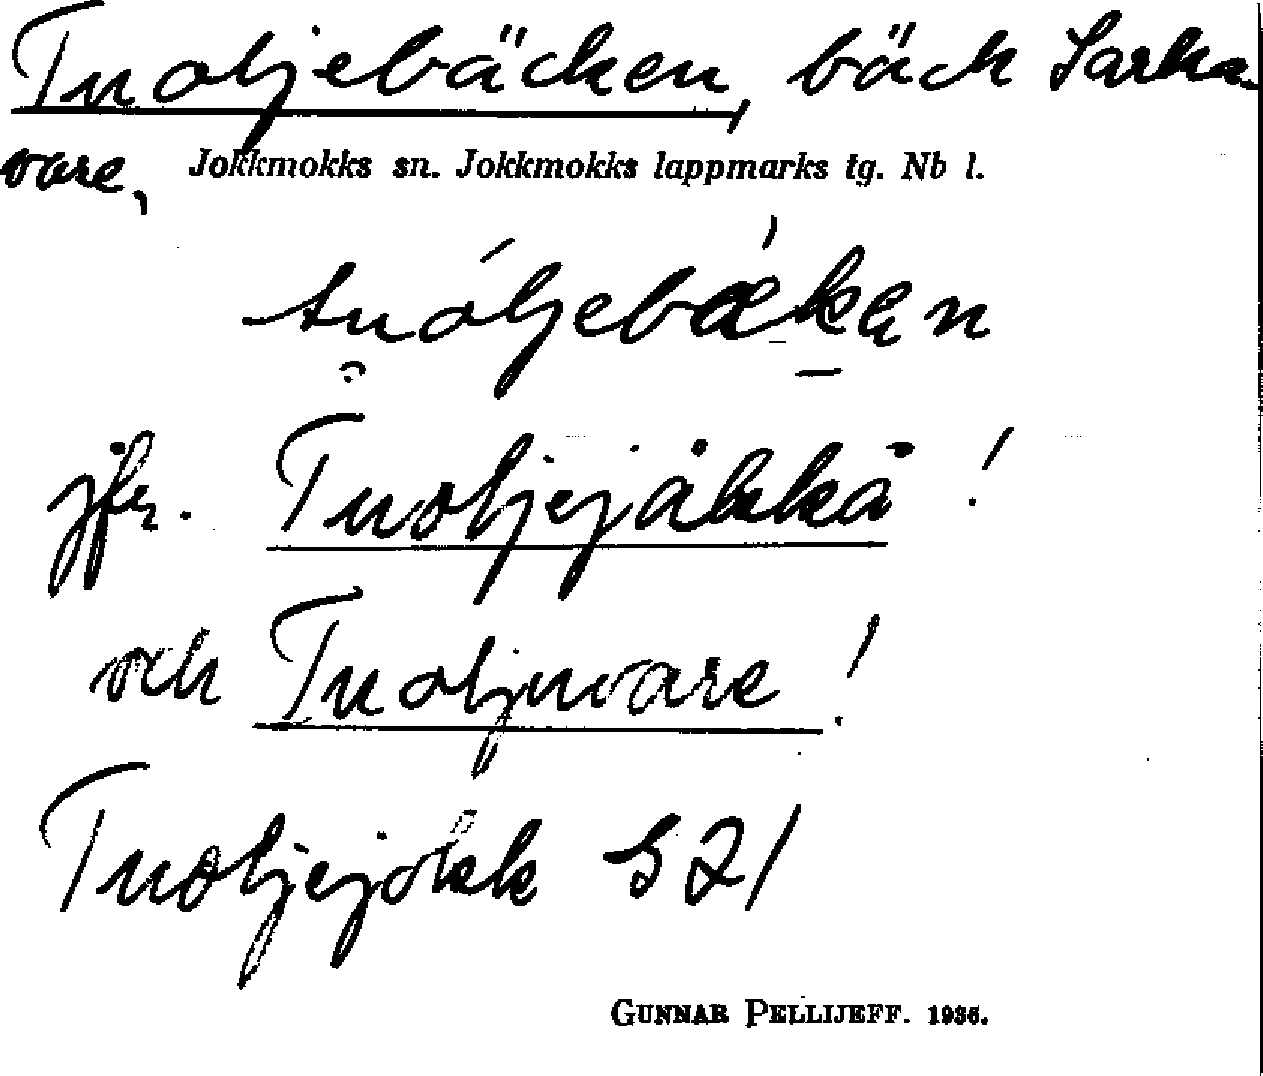 Tuoljebäcken, bäck Sarka-
vare, Jokkmokks sn. Jokkmokks lappmarks tg. Nb l.
tuóljebæken
jfr. Tuoljejåkkå!
och Tuoljuvare!
Tuoljejokk S 21
GUNNAR PELLIJEFF. 1936.